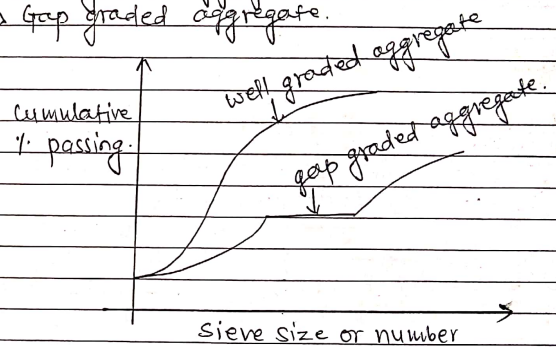 Gap graded aggregate.
well graded aggregate
Cumulative
% passing.
gap graded aggregate.
Sieve size or number